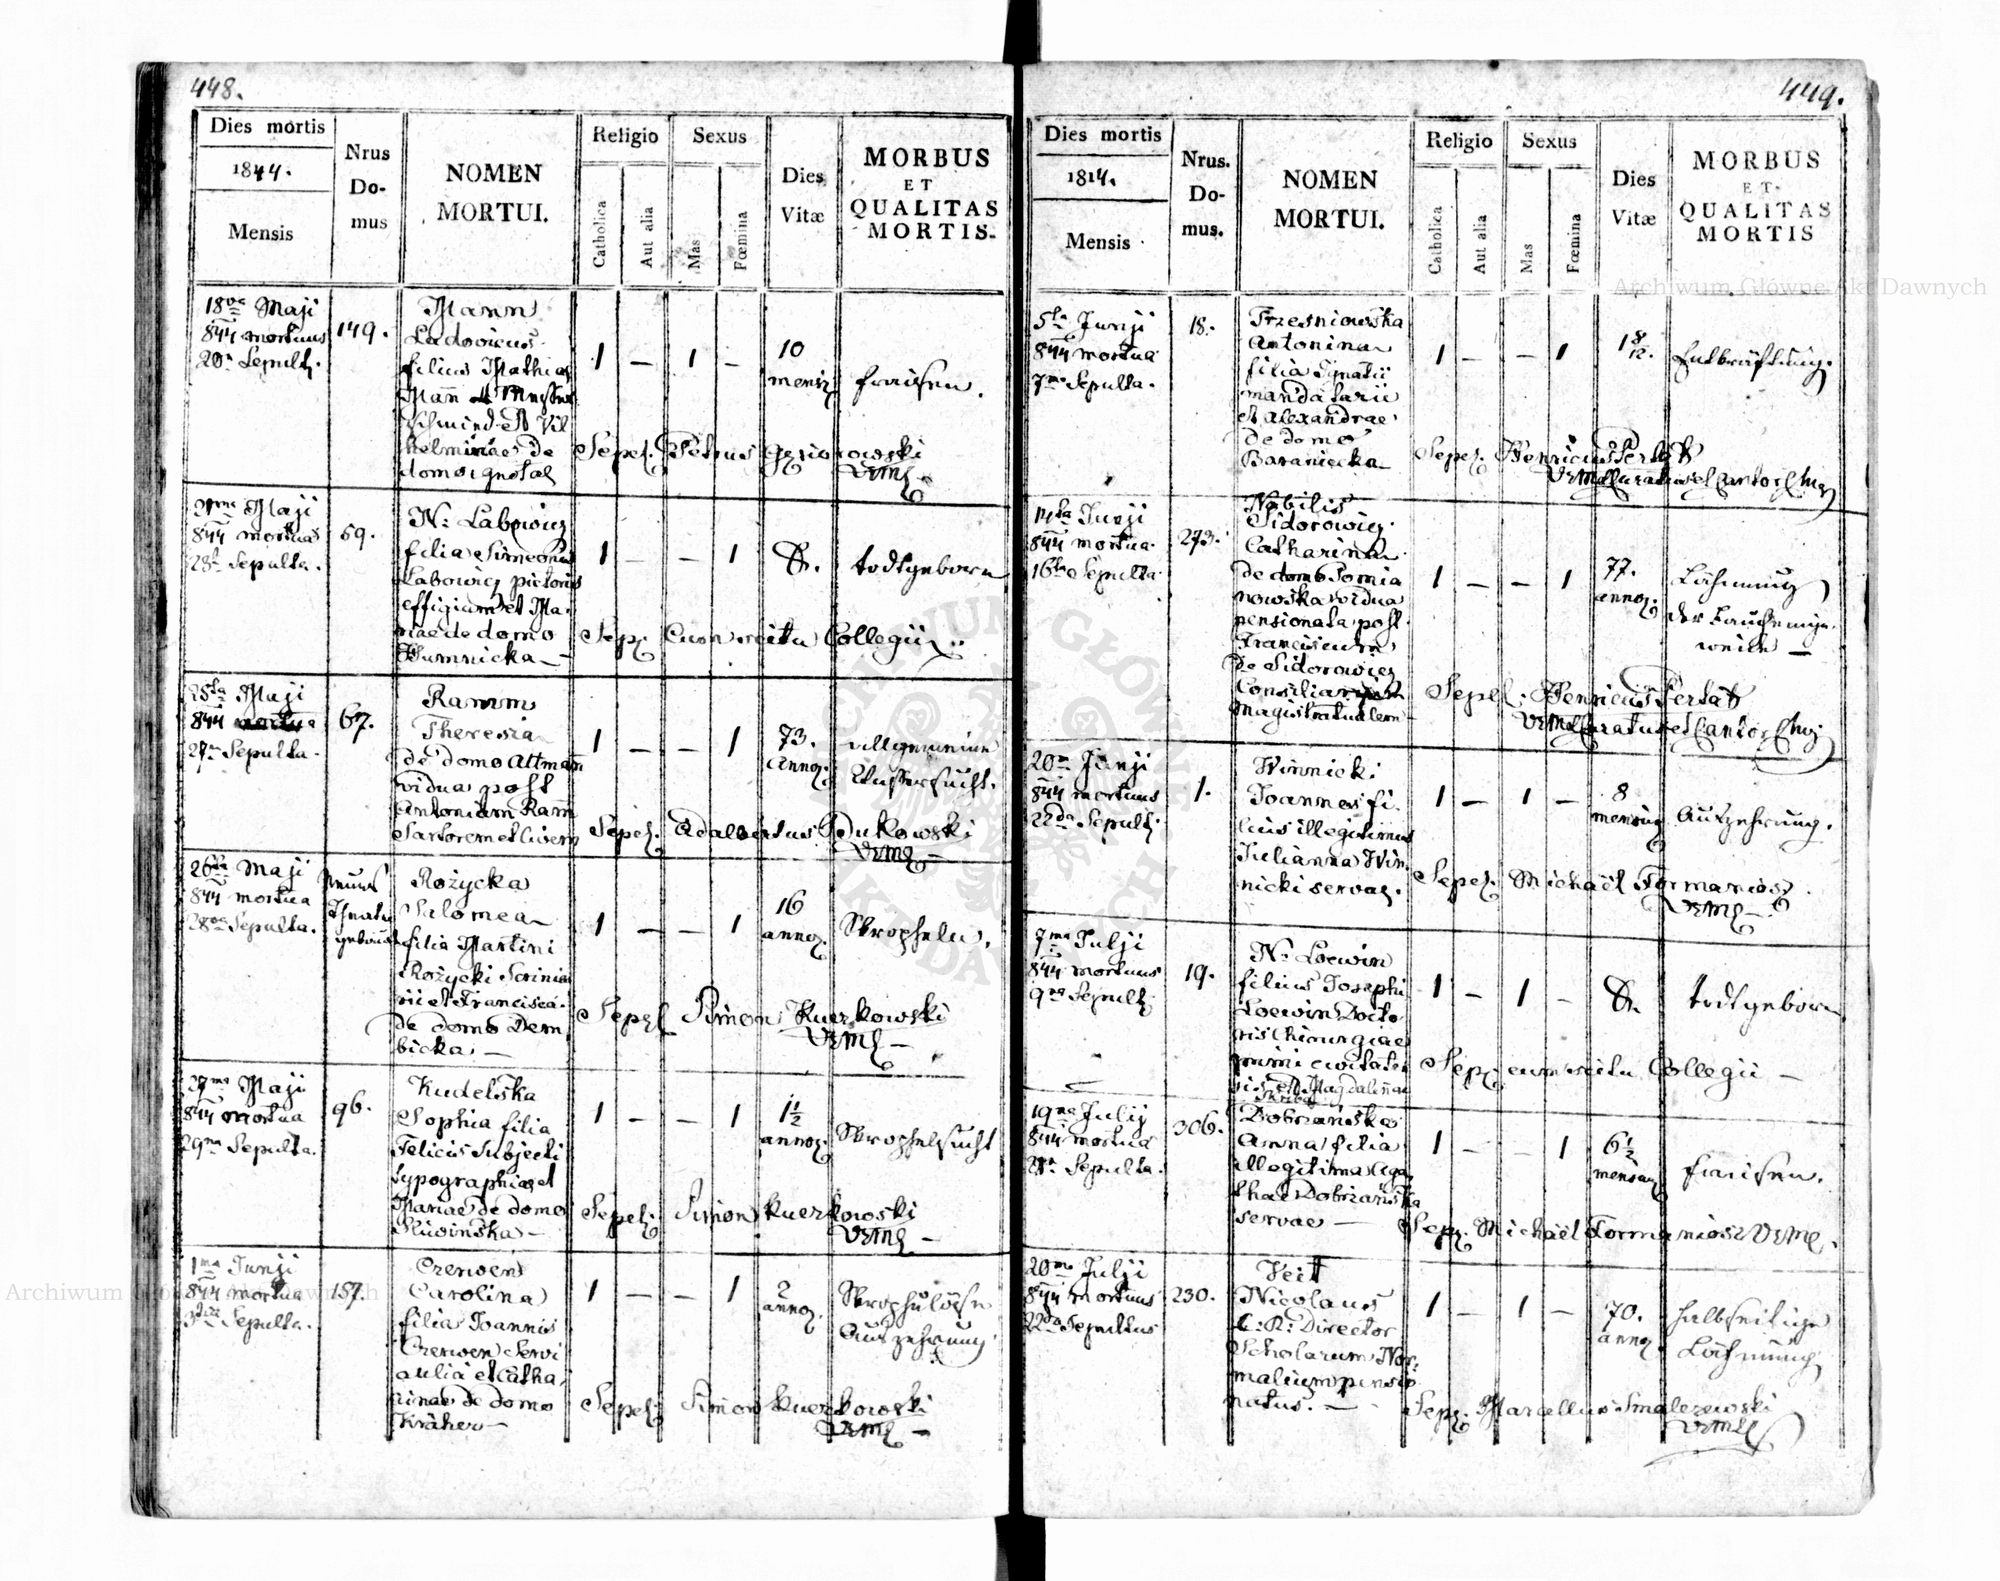 448.
Dies mortis
1844.
Mensis
Nrus
Do-
mus
NOMEN
MORTUI.
Religio
Catholica
Aut alia
Sexus
Mas
Fœmina
Dies
Vitæ
MORBUS
ET
QUALITAS
MORTIS.
18va Maji
844 mortuus
20a Sepult.
149.
Mann
Ladovicus
filius Mathias
Mann
Schmied et Vil
helminae de
domo ignotae
1 — 1 —
10
mensiū
Fraisen.
Sepel. Petrus
VRMC
Maji
844 mortua
28a Sepulta.
59.
N: Labowicz
filia Simeonis
Labowicz pictoris
effigium et Ma-
riae de domo
Humnicka —
1 — — 1
todtgeboren
Sep. Cum scitu Collegii
25ta Maji
844 mortua
27a Sepulta.
67.
Ramm
Theresia
de domo Altman
vidua post
Antonium Ram
Sartorem et Civem
1 — — 1
73.
annoꝝ.
allgemeine
Wassersucht.
Sepel. Adalbertus Dukowski
VRMC —
26ta Maji
844 mortua
28va Sepulta.
Rożycka
Salomea
filia Martini
Rożycki Scrinia
rii et Francisca
de domo Dem
bicka —
1 — — 1
16
annoꝝ.
Skropheln.
Sepel. Simon Kuczkowski
VRMC —
27ma Maji
844 mortua
29na Sepulta.
96.
Kudelska
Sophia filia
Felicis Subjecti
typographiae et
Mariae de domo
Sliwinska —
1 — — 1
1½
annoꝝ.
Skrophelsucht
Sepel: Simon Kuczkowski
VRMC —
1ma Junji
844 mortua
3tia Sepulta.
157.
Czerwen
Carolina
filia Joannis
Czerwen Servi
aulici et Catha-
rinae de domo
Kräher —
1 — — 1
2
annoꝝ.
Skrophulöse
Auszehrung
Sepel: Simon Kuczkowski
VRMC —
449.
Dies mortis
1814.
Mensis
Nrus.
Do-
mus.
NOMEN
MORTUI.
Religio
Catholica
Aut alia
Sexus
Mas
Fœmina
Dies
Vitæ
MORBUS
ET
QUALITAS
MORTIS
5ta Junji
844 mortua
7ma Sepulta.
18.
Trzesniowska
Antonina
filia Ignatii
mandatarii
et Alexandrae
de domo
Baraniecka
1 — — 1
1 8/12.
Entkräftung.
Sepel. Henricus Pertak
14ta Junji
844 mortua
16ta Sepulta
273.
Nobilis
Sidorowicz
Catharina
de domo Pomia
nowska vidua
pensionata post
Franciscum
de Sidorowicz
Magistratualem
1 — — 1
77.
annoꝝ.
Lähmung
Sepel: Henricus Pertak
20a Junji
844 mortuus
22da Sepult.
1.
Winnicki
Joannes fi-
lius illegitimus
Julianna Win-
nicki servae.
1 — 1 —
8
mensiū
Auszehrung.
Sepel. Michaël Formaniosz
VRMC —
7ma Julji
844 mortuus
9na Sepult.
19.
N: Loewin
filius Josephi
Loewin Docto-
ris Chirurgiae
et Magdalenae
1 — 1 —
todtgeboren
Sep. cum scitu Collegii —
19na Julij
844 mortua
Sepulta.
306.
Dobrzańska
Anna filia
illegitima Aga
thae Dobrzańska
servae —
1 — — 1
6½
mensiū
Fraisen.
Sep. Michaël Formaniosz VRMC.
20ma Julji
844 mortuus
22da Sepultus
230.
Veit
Nicolaus
C: R: Director
Scholarum Nor-
malium pensio-
natus. —
1 — 1 —
70.
annoꝝ
halbseitige
Lähmung
Sep. Marcellus Smalczewski
VRMC
Archiwum Główne Akt Dawnych